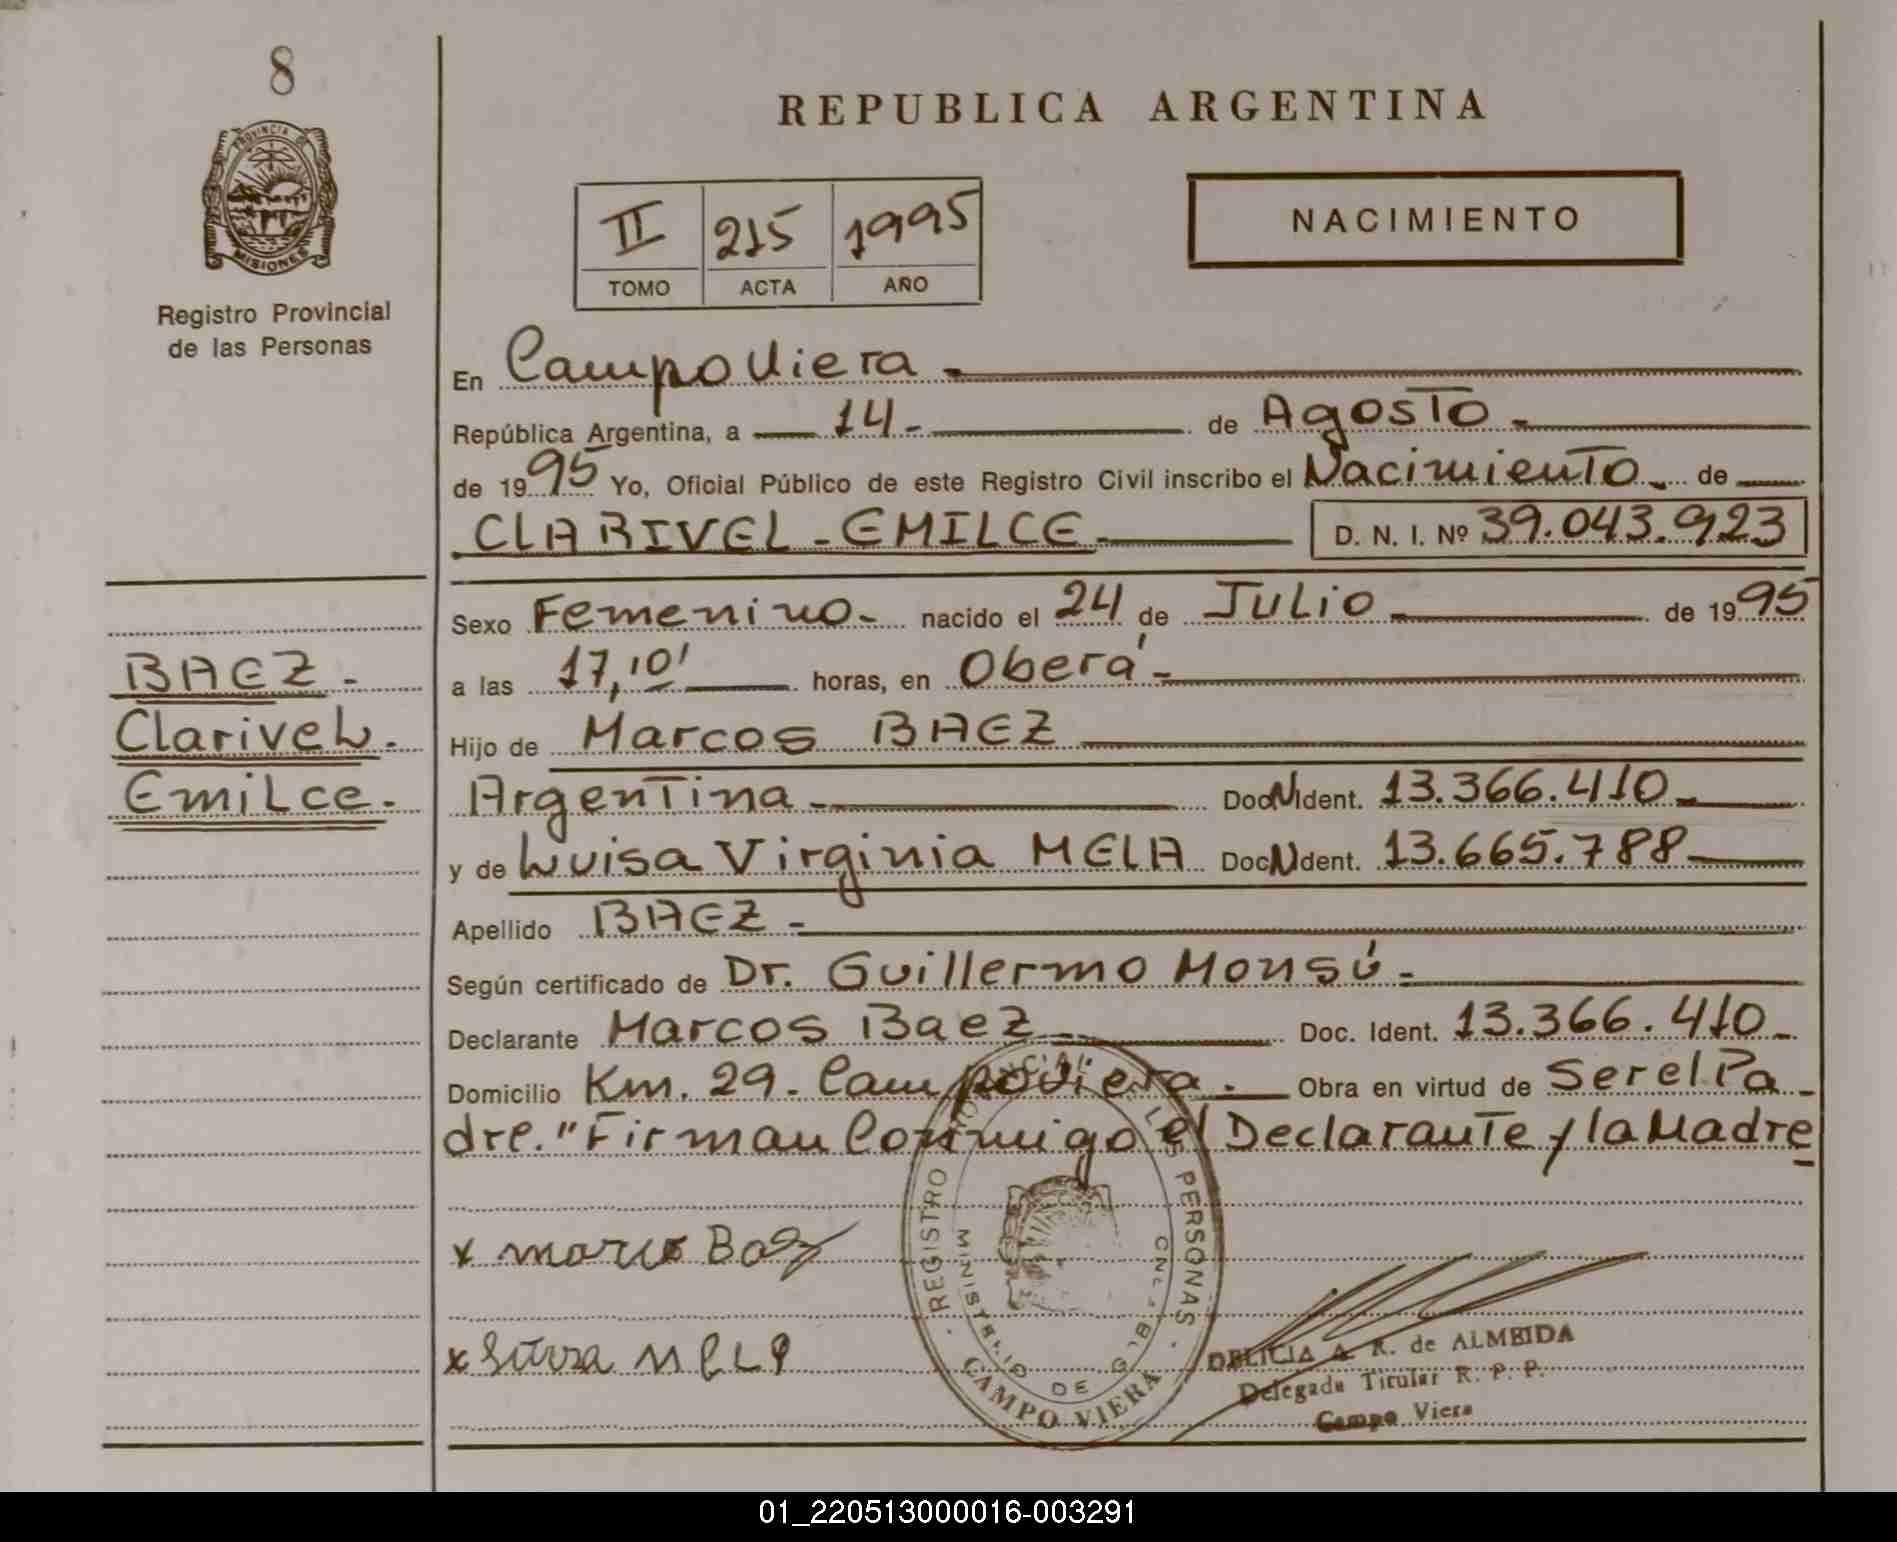 8
PROVINCIA DE
MISIONES
Registro Provincial
de las Personas
REPUBLICA ARGENTINA
II 215 1995
TOMO ACTA AÑO
NACIMIENTO
En Campo Viera -
República Argentina, a 14- de Agosto -
de 1995 Yo, Oficial Público de este Registro Civil inscribo el Nacimiento - de
CLARIVEL - EMILCE - D. N. I. Nº 39.043.923
Sexo Femenino - nacido el 24 de Julio - de 1995
a las 17,10' horas, en Oberá -
Hijo de Marcos BAEZ
Argentina - Doc N Ident. 13.366.410 -
y de Luisa Virginia MELA Doc N dent. 13.665.788 -
Apellido BAEZ -
Según certificado de Dr. Guillermo Monsú -
Declarante Marcos Baez - Doc. Ident. 13.366.410 -
Domicilio Km. 29 - Campo Viera . Obra en virtud de Ser el Pa -
dre." Firman Conmigo el Declarante y la Madre
BAEZ -
Clarivel .
Emilce .
x marcos Baez
x Luisa Mela
REGISTRO PROVINCIAL DE LAS PERSONAS
MINISTERIO DE GOB.
CAMPO VIERA
DELICIA A. R. de ALMEIDA
Delegada Titular R. P. P.
Campo Viera
01_220513000016-003291